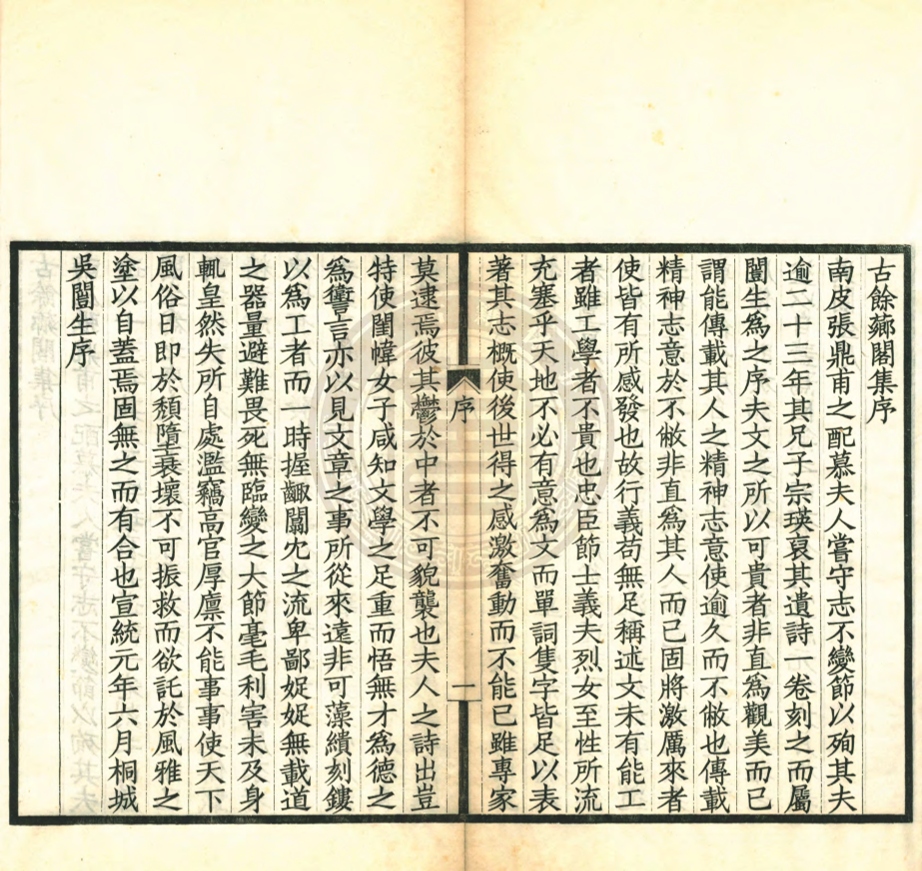 古餘薌閣集序
南皮張鼎甫之配慕夫人嘗守志不變節以殉其夫
逾二十三年其兄子宗瑛哀其遺詩一卷刻之而屬
闓生爲之序夫文之所以可貴者非直爲觀美而已
謂能傳載其人之精神志意使逾久而不敝也傳載
精神志意於不敝非直爲其人而已固將激厲來者
使皆有所感發也故行義苟無足稱述文未有能工
者雖工學者不貴也忠臣節士義夫烈女至性所流
充塞乎天地不必有意爲文而單詞隻字皆足以表
著其志槪使後世得之感激奮動而不能已雖專家
序
一
莫逮焉彼其鬱於中者不可貌襲也夫人之詩出豈
特使閨幃女子咸知文學之足重而悟無才爲德之
爲讆言亦以見文章之事所從來遠非可藻繢刻鏤
以爲工者而一時握齱闒冗之流卑鄙娖娖無載道
之器量避難畏死無臨變之大節毫毛利害未及身
輒皇然失所自處濫竊高官厚廩不能事事使天下
風俗日卽於頽隳衰壞不可振救而欲託於風雅之
塗以自蓋焉固無之而有合也宣統元年六月桐城
吳闓生序